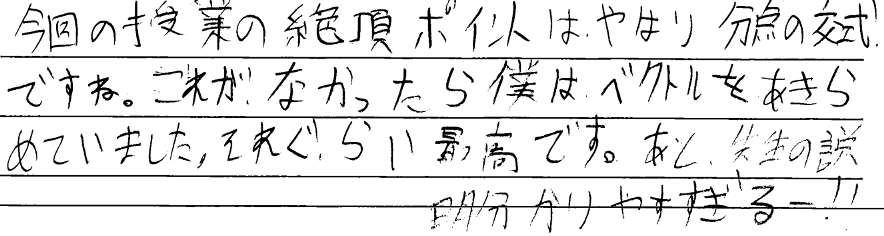 今回の授業の絶頂ポイントはやはり分点の公式
ですね。これがなかったら僕はベクトルをあきら
めていました,それぐらい最高です。あと、先生の説
明分かりやすすぎるー!!